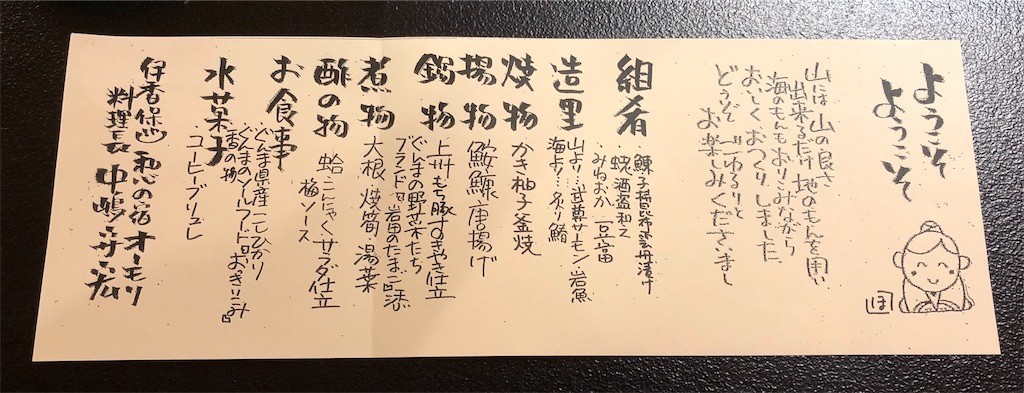 ようこそ
ようこそ
ほ
山には 山の良さ
出来るだけ 地のもんを用い
海のもんもおりこみながら
おいしく おつくりしました。
どうぞ ごゆるりと
お楽しみくださいまし
組肴
鰊子揚昆布雲丹漬け
蛻酒盗和え
みねおか豆富
造里
山より…武尊サーモン 岩魚
海より…炙り鰆
焼物
かき柚子釜焼
揚物
鮟鱇唐揚げ
鍋物
上州もち豚すきやき仕立
ぐんまの野菜たち
ブランド卵「岩田のたまご」添
煮物
大根 焼筍 湯葉
酢の物
蛤こんにゃくサラダ仕立
梅ソース
お食事
ぐんま県産こしひかり
ぐんまのソールフード「おきりこみ」
香の物
水菓子
コーヒーブリュレ
伊香保 和心の宿 オーモリ
料理長